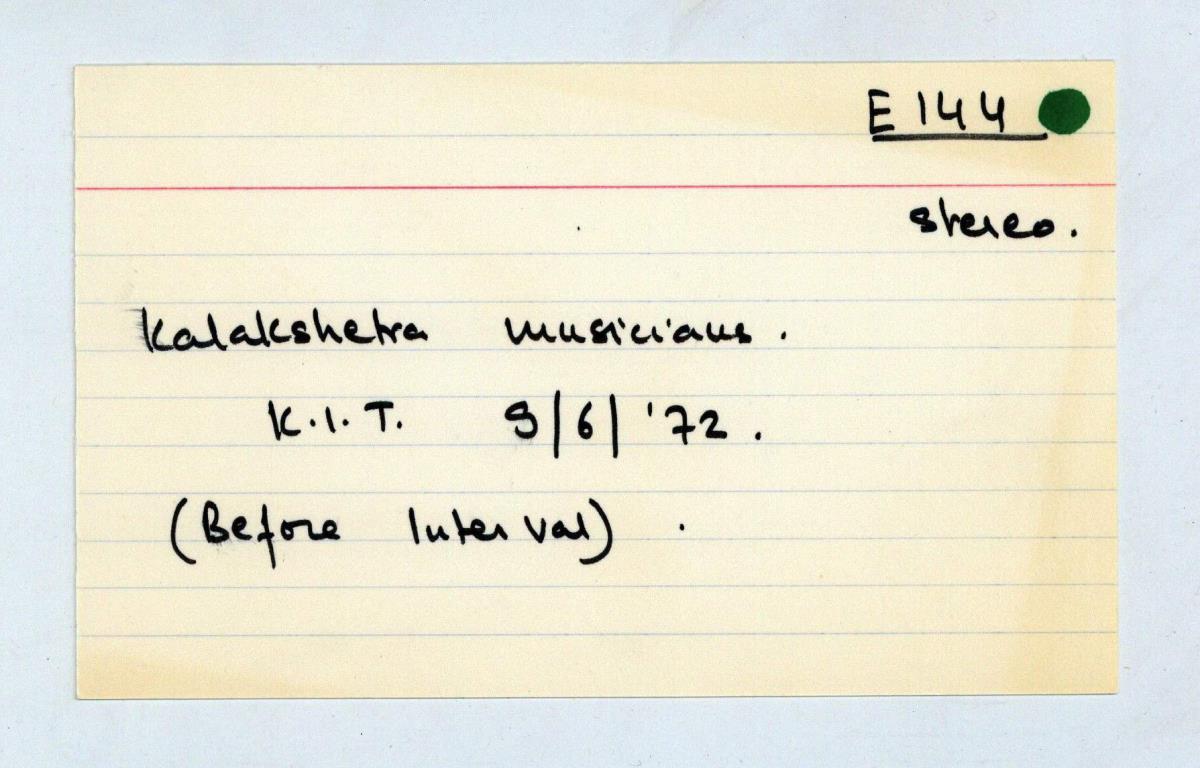 E 144
stereo.
Kalakshetra musicians.
K.I.T. 9/6/'72.
(Before Interval).